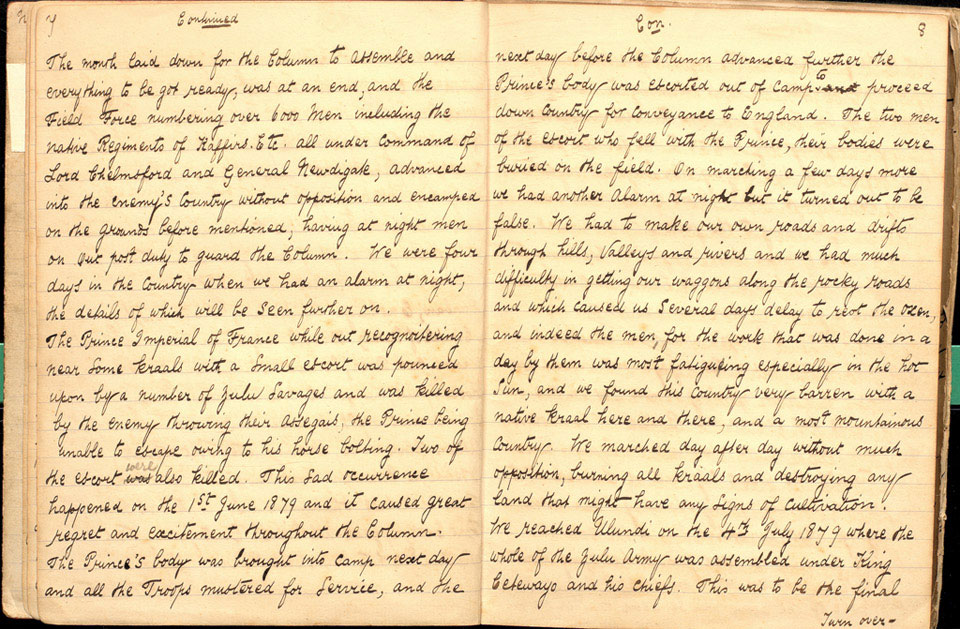 7
Continued
The month laid down for the Column to assemble and
everything to be got ready, was at an end, and the
Field Force numbering over 6000 Men including the
native Regiments of Kaffirs. Etc. all under command of
Lord Chelmsford and General Newdigate, advanced
into the enemy's Country without opposition and encamped
on the grounds before mentioned, having at night men
on Out post duty to guard the Column. We were four
days in the Country when we had an alarm at night,
the details of which will be seen further on.
The Prince Imperial of France while out recognoitering
near some kraals with a small escort was pounced
upon by a number of Zulu Savages and was killed
by the enemy throwing their assegais, the Prince being
unable to escape owing to his horse bolting. Two of
the escort was were also killed. This sad occurrence
happened on the 1st June 1879 and it caused great
regret and excitement throughout the Column.
The Prince's body was brought into Camp next day
and all the Troops mustered for Service, and the
Con.
8
next day before the Column advanced further the
Prince's body was escorted out of Camp and to proceed
down Country for conveyance to England. The two men
of the escort who fell with the Prince, their bodies were
buried on the field. On marching a few days more
we had another Alarm at night but it turned out to be
false. We had to make our own roads and drifts
through hills, Valleys and rivers and we had much
difficulty in getting our waggons along the rocky roads
and which caused us Several days delay to rest the oxen,
and indeed the men, for the work that was done in a
day by them was most fatigueing especially in the hot
Sun, and we found this Country very barren with a
native kraal here and there, and a most mountainous
Country. We marched day after day without much
opposition, burning all kraals and destroying any
land that might have any signs of Cultivation.
We reached Ulundi on the 4th July 1879 where the
whole of the Zulu Army was assembled under King
Cetewayo and his chiefs. This was to be the final
Turn over-